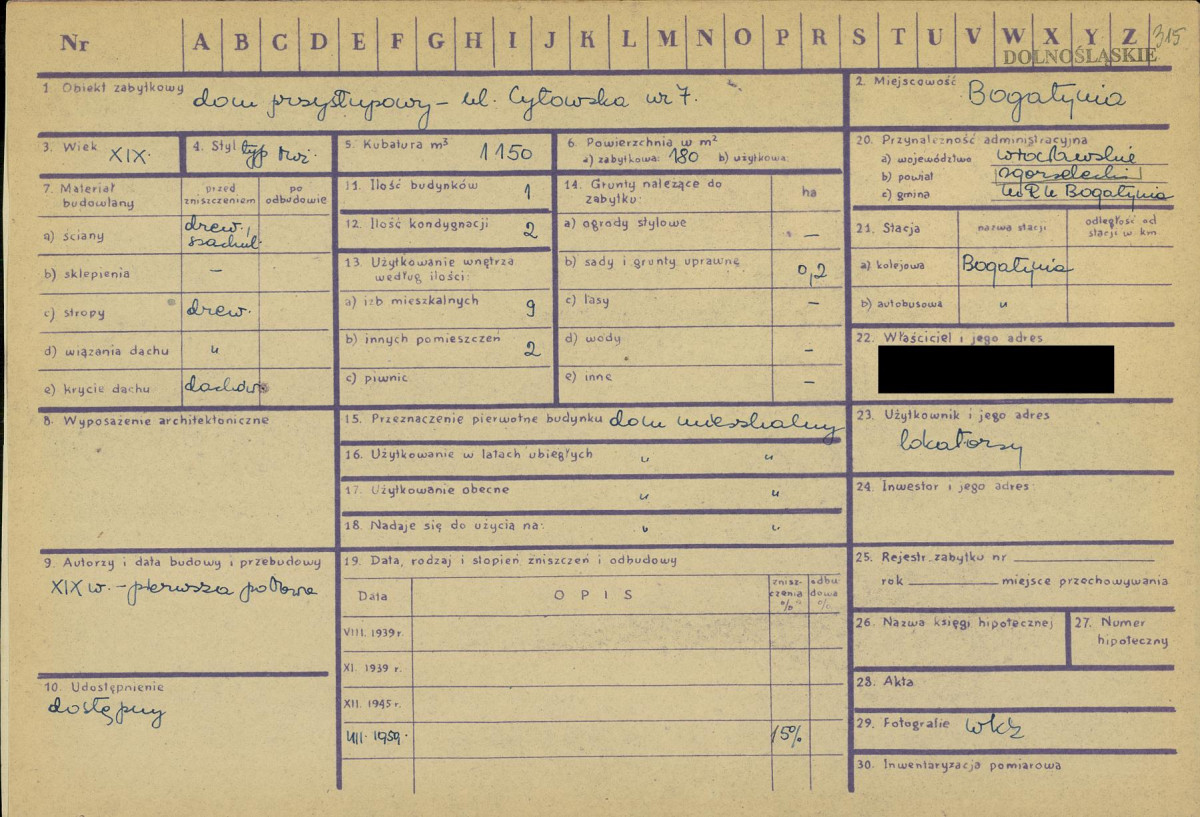 Nr A B C D E F G H I J K L M N O P R S T U V W X Y Z 315
DOLNOŚLĄSKIE
1. Obiekt zabytkowy dom przysłupowy – ul. Cyłowska nr 7.
2. Miejscowość Bogatynia
3. Wiek XIX.
4. Styl typ
5. Kubatura m³ 1150
6. Powierzchnia w m²
a) zabytkowa: 180 b) użytkowa:
20. Przynależność administracyjna
a) województwo wrocławskie
b) powiat zgorzelecki
c) gmina Bogatynia
7. Materiał budowlany
przed zniszczeniem
po odbudowie
a) ściany drew., szachul.
b) sklepienia –
c) stropy drew.
d) wiązania dachu "
e) krycie dachu dachów.
11. Ilość budynków 1
12. Ilość kondygnacji 2
13. Użytkowanie wnętrza
według ilości:
a) izb mieszkalnych 9
b) innych pomieszczeń 2
c) piwnic
14. Grunty należące do
zabytku: ha
a) ogrody stylowe –
b) sady i grunty uprawne 0,2
c) lasy –
d) wody –
e) inne –
21. Stacja
nazwa stacji
odległość od
stacji w km.
a) kolejowa Bogatynia
b) autobusowa "
22. Właściciel i jego adres
8. Wyposażenie architektoniczne
15. Przeznaczenie pierwotne budynku dom mieszkalny
16. Użytkowanie w latach ubiegłych " "
17. Użytkowanie obecne " "
18. Nadaje się do użycia na: " "
23. Użytkownik i jego adres
lokatorzy
24. Inwestor i jego adres:
9. Autorzy i data budowy i przebudowy
XIX w. – pierwsza połowa
10. Udostępnienie
dostępny
19. Data, rodzaj i stopień zniszczeń i odbudowy
Data OPIS znisz-czenia % odbu-dowa %
VIII. 1939 r.
XI. 1939 r.
XII. 1945 r.
VIII. 1959. 15%
25. Rejestr. zabytku nr
rok miejsce przechowywania
26. Nazwa księgi hipotecznej
27. Numer
hipoteczny
28. Akta
29. Fotografie WKZ
30. Inwentaryzacja pomiarowa